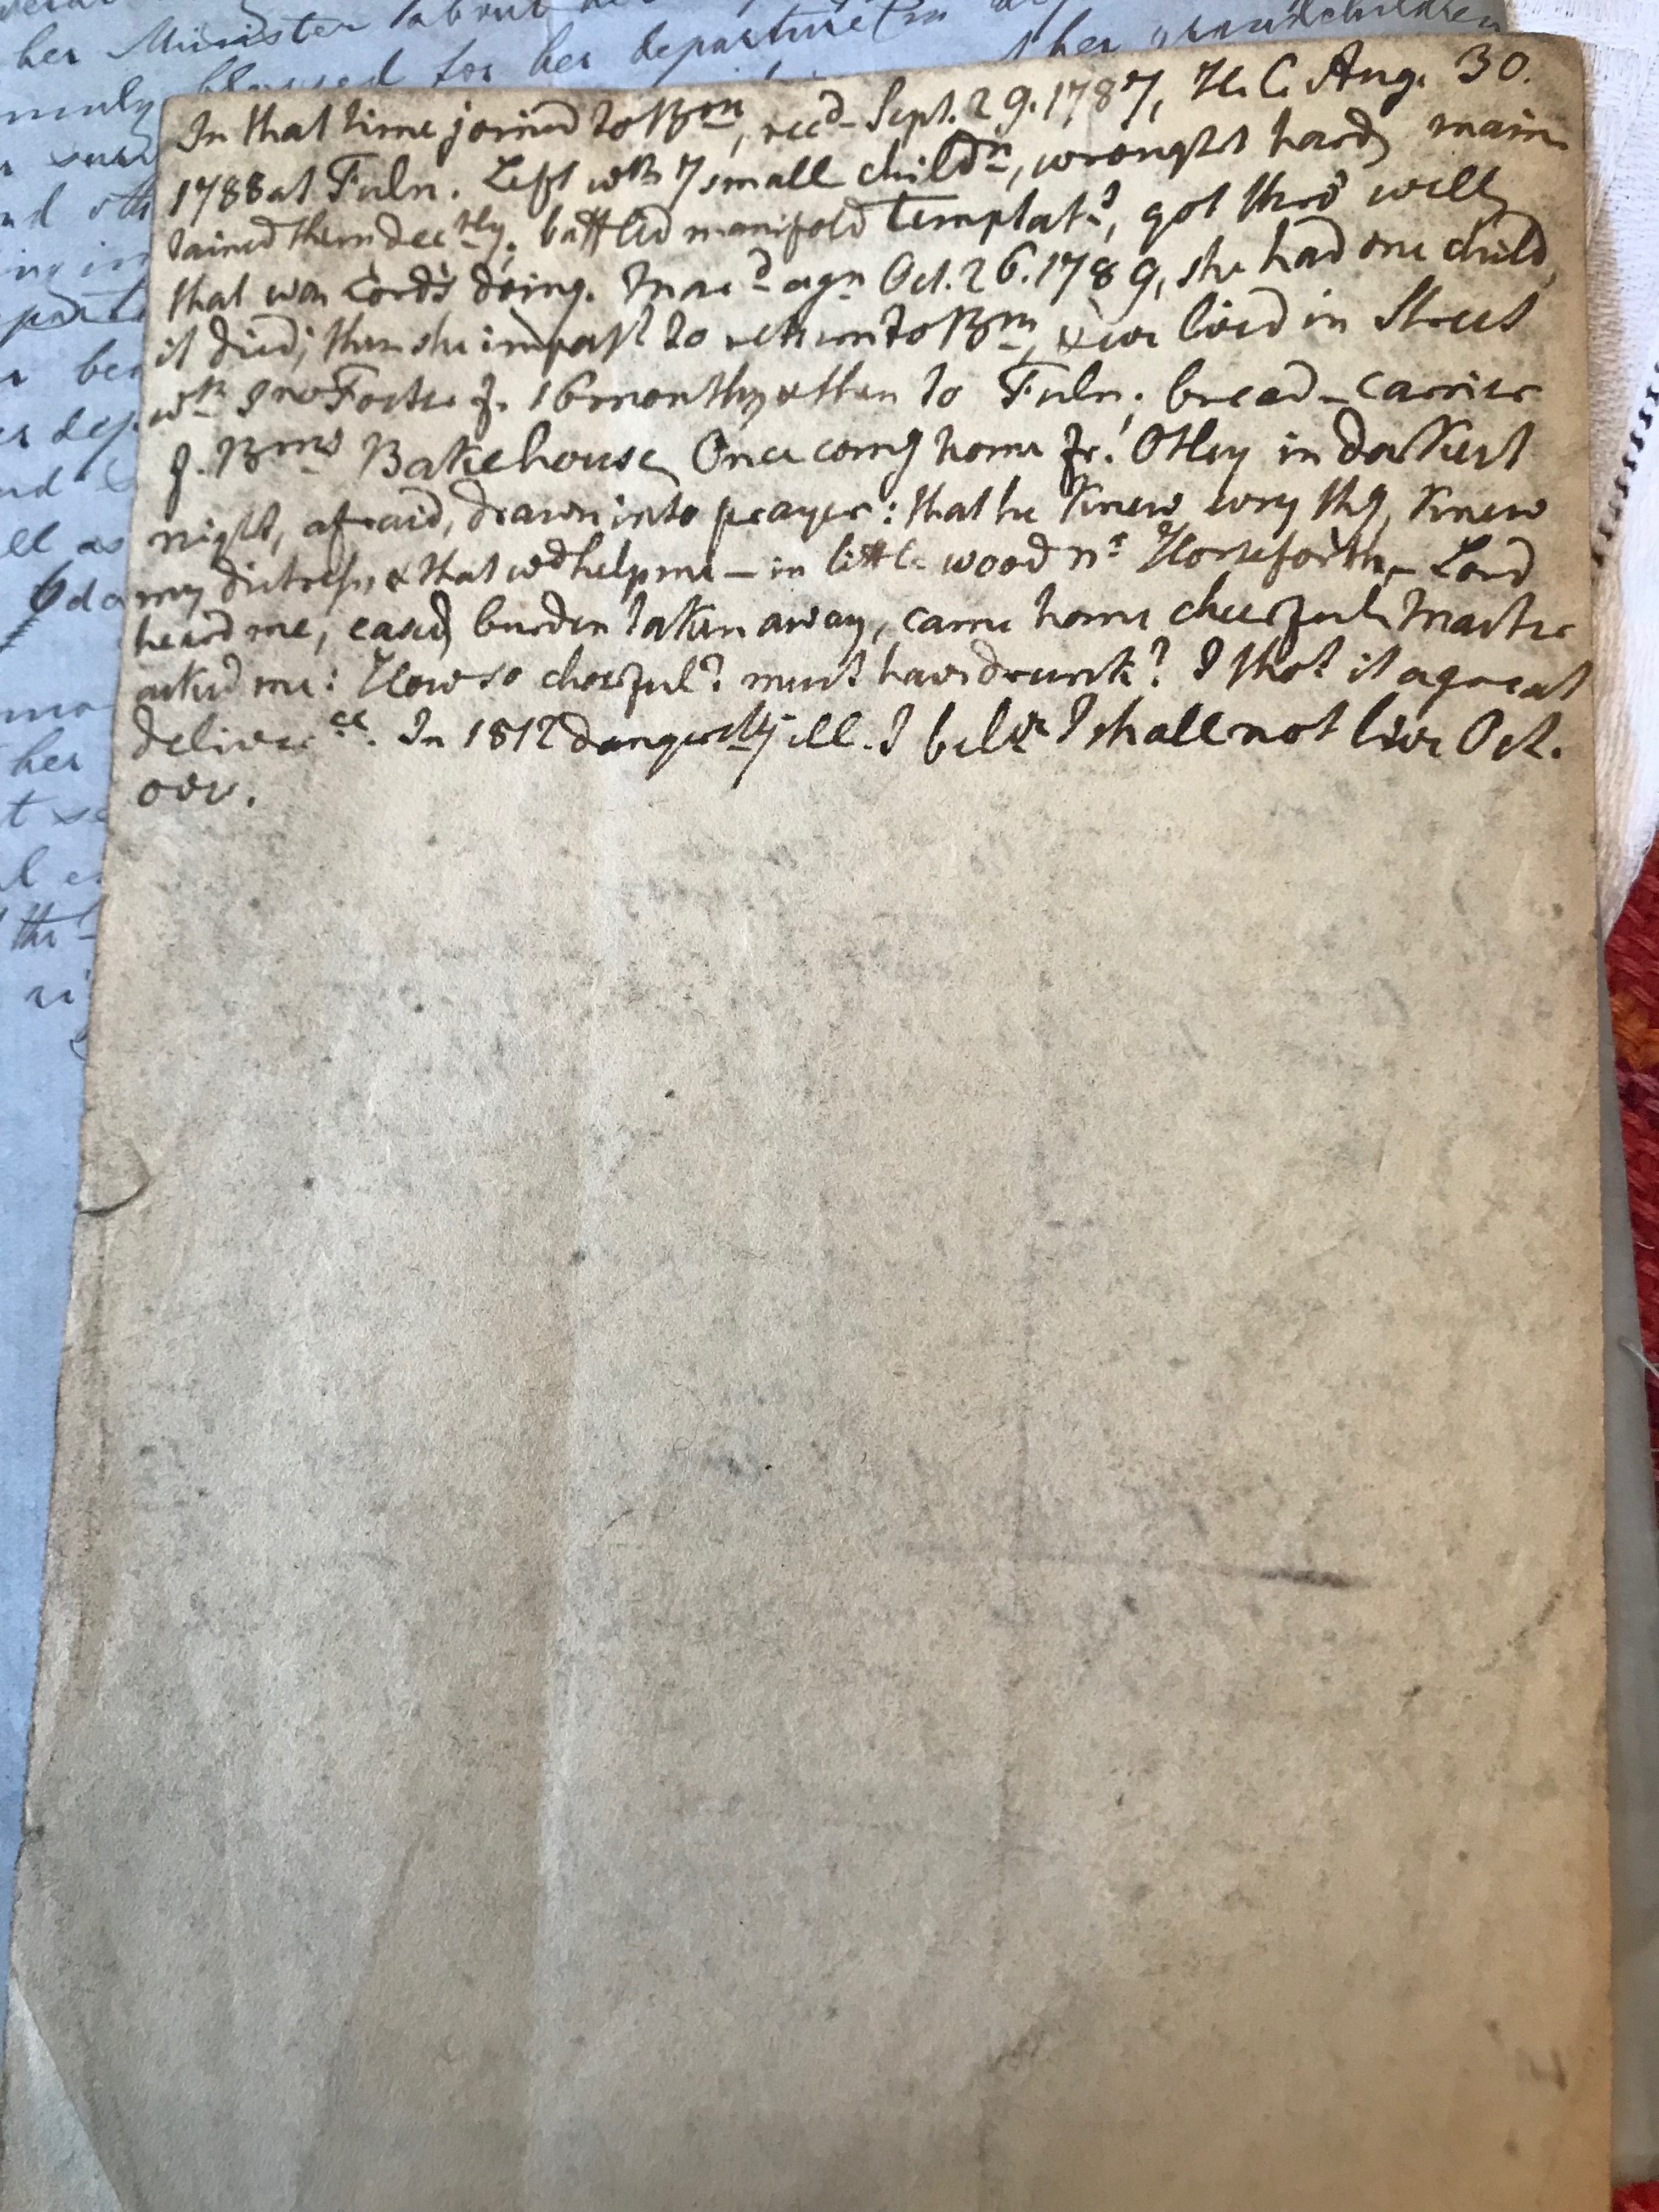 her Minister about her
blessed for her departure in
her grandchildren
In that time joined to Brn, recd Sept. 29. 1787, H. C. Aug. 30.
1788 at Fuln. Left wth 7 small childrn, wrought hard, main
tained them decntly, battled manifold temptats, got thro' well,
that was Lord's doing. Mared agn Oct. 26. 1789, she had one child,
it died; then she impast to return to Brn, & we lived in Street
wth Jno Foster f. 16 months, & then to Fuln; bread-carrier
f. Brns Bakehouse. Once comg home fr. Otley in darkest
night, afraid, drawn into prayer: that he knew evry thg, knew
my distress & that wd help me — in little wood nr Horseforth, — Lord
heard me, eased, burden taken away, came home cheerful. Master
asked me: How so cheerful? must have drunk? I thot it a great
deliverce. In 1812 dangerously ill. I belve I shall not live Oct.
over.